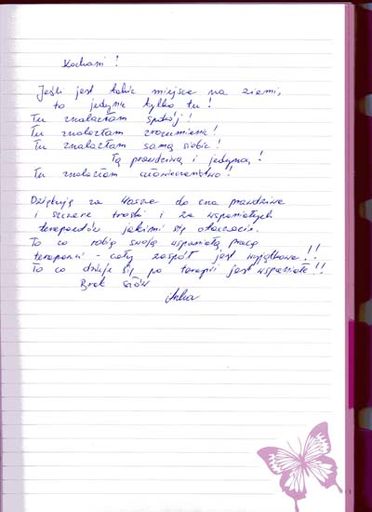 Kochani!
Jeśli jest takie miejsce na ziemi,
to jedynie tylko tu!
Tu znalazłam spokój!
Tu znalazłam zrozumienie!
Tu znalazłam samą siebie!
Tą prawdziwą i jedyną!
Tu znalazłam człowieczeństwo!
Dziękuję za Wasze do dna prawdziwe
i szczere troski i za wspaniałych
terapeutów jakimi się otaczacie.
To co robią swoją wspaniałą pracą
terapeuci - cały zespół jest wyjątkowe!!
To co dzieje się po terapii jest wspaniałe!!
Brak słów